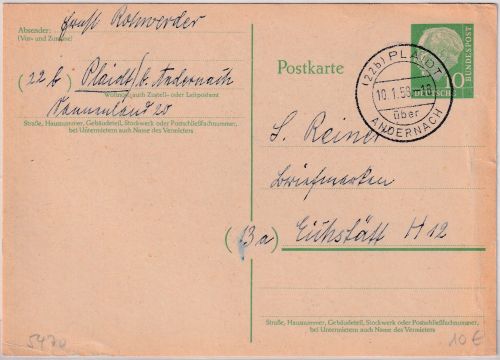 Absender: Ernst Rohwerder
(Vor- und Zuname)
(22 b) Plaidt/b. Andernach
Wohnort, auch Zustell- oder Leitpostamt
20
Straße, Hausnummer, Gebäudeteil, Stockwerk oder Postschließfachnummer,
bei Untermietern auch Name des Vermieters
Postkarte
(22b) PLAIDT
10.1.58.-18
über
ANDERNACH
10
DEUTSCHE
BUNDESPOST
S. Reiner
Briefmarken
(13a) Eichstätt H 12
Straße, Hausnummer, Gebäudeteil, Stockwerk oder Postschließfachnummer,
bei Untermietern auch Name des Vermieters
5470
10 €